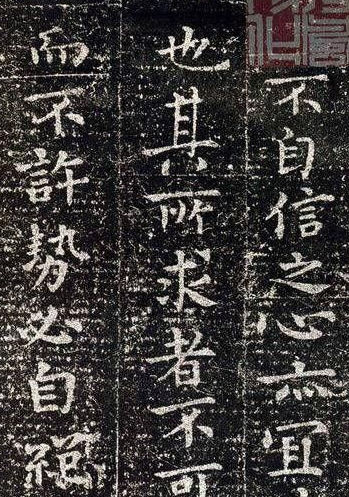 不自信之心亦宜
也其所求者不可
而不許勢必自絕